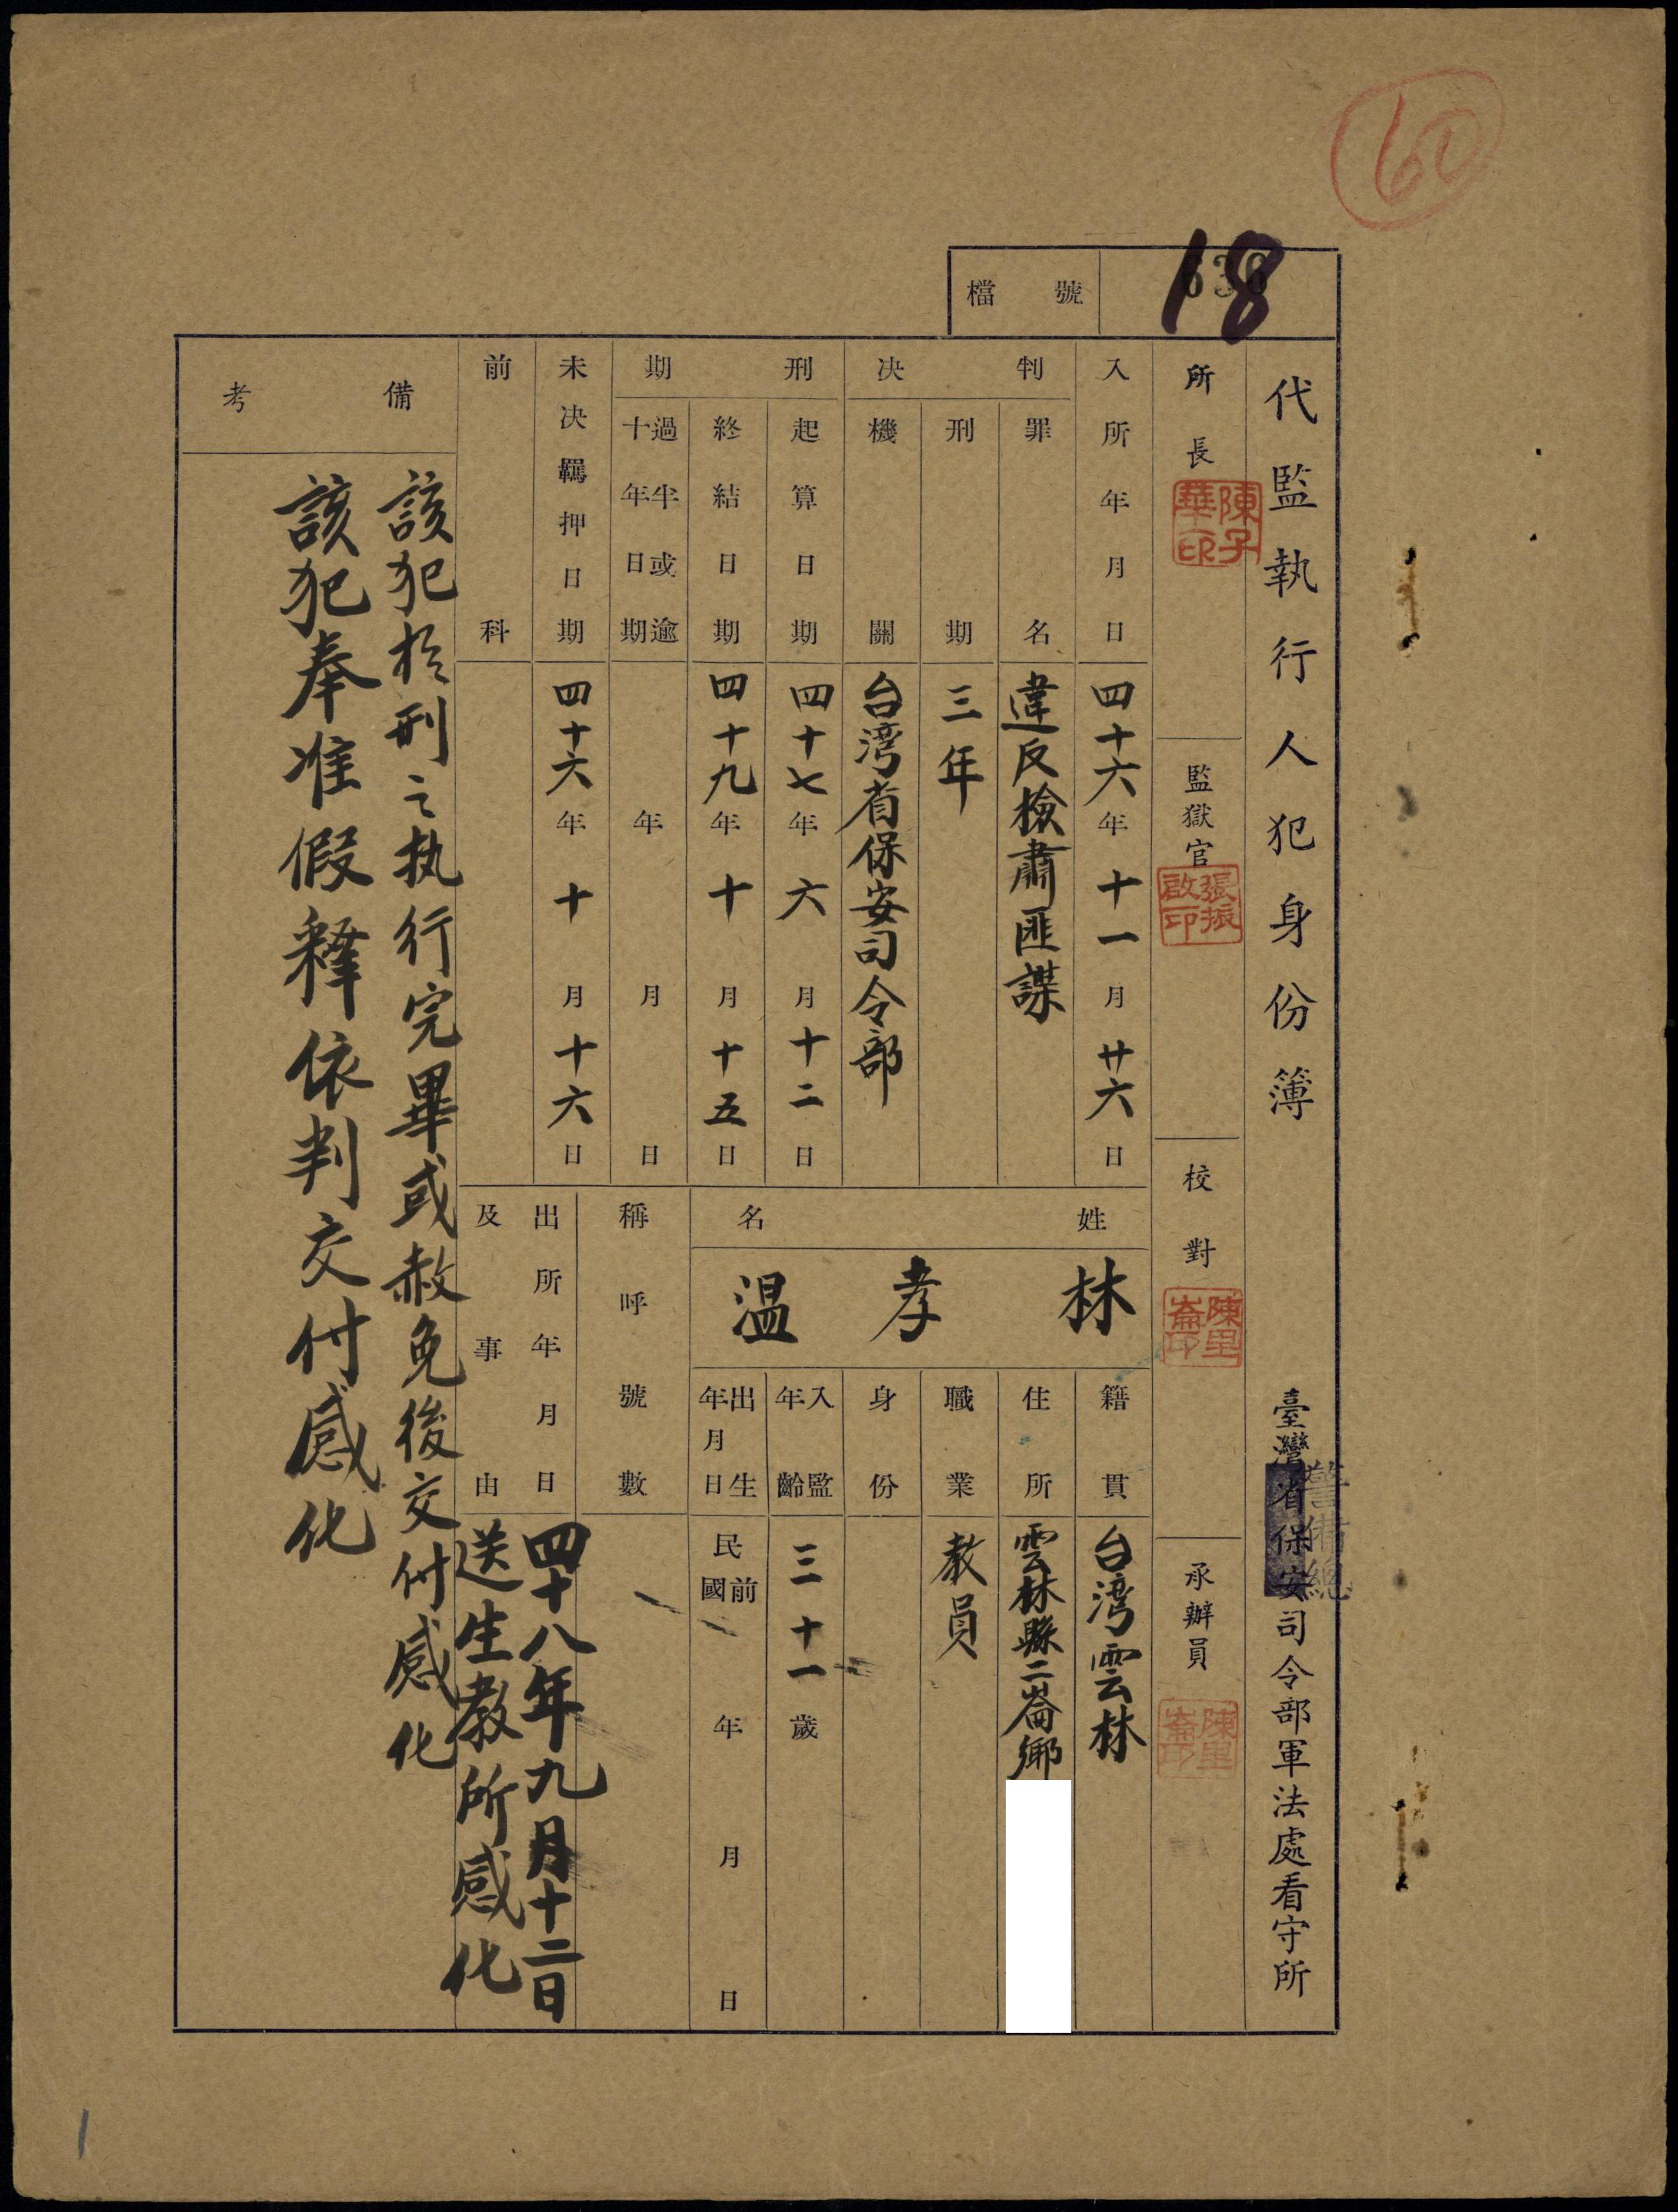 60
檔號
636
18
代監執行人犯身份簿
臺灣省保安司令部軍法處看守所
警備總
所長
陳子華印
監獄官
張振啟印
校對
陳里崙印
承辦員
陳里崙印
入所年月日
四十六年十一月廿六日
判決
罪名
違反檢肅匪諜
刑期
三年
機關
台湾省保安司令部
刑期
起算日期
四十七年六月十二日
終結日期
四十九年十月十五日
過半或逾十年日期
年月日
未決羈押日期
四十六年十月十六日
前科
姓名
林孝温
籍貫
台湾雲林
住所
雲林縣二崙鄉
職業
教員
身份
入監年齡
三十一歲
出生年月日
民國前年月日
稱呼號數
出所年月日及事由
四十八年九月十二日
送生教所感化
備考
該犯於刑之执行完畢或赦免後交付感化
該犯奉准假釋依判交付感化
1